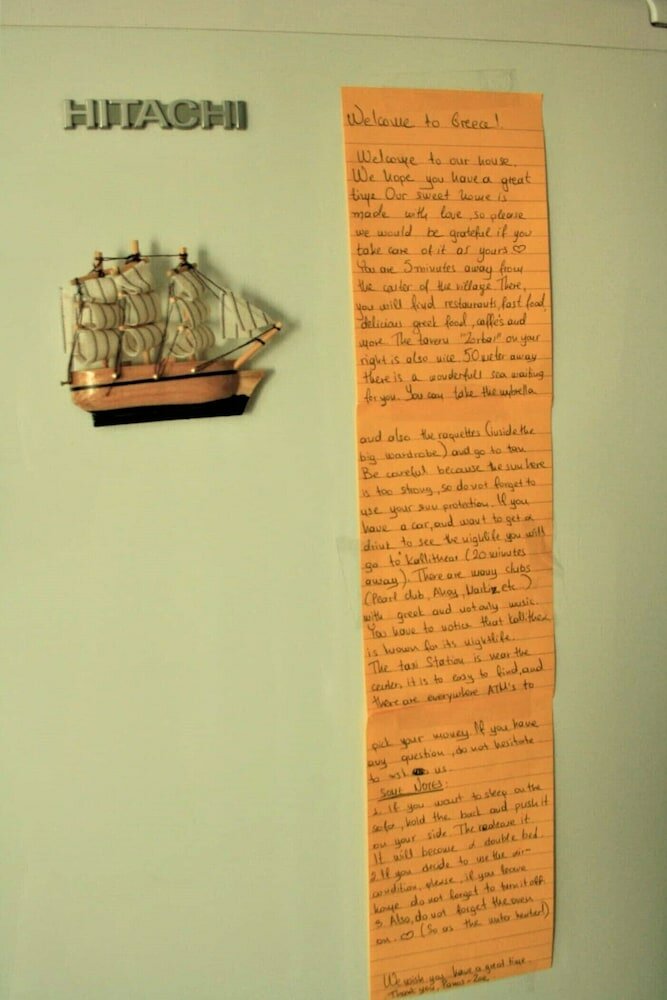 HITACHI
Welcome to Greece!
Welcome to our house.
We hope you have a great
time. Our sweet home is
made with love, so please
we would be grateful if you
take care of it as yours ♡
You are 5 minutes away from
the center of the village. There,
you will find restaurants, fast food,
delicious greek food, caffe's and
more. The tavern "Zorbas" on your
right is also nice. 50 meter away
there is a wonderfull sea waiting
for you. You can take the umbrella
and also the raquettes (inside the
big wardrobe) and go to tan.
Be careful because the sun here
is too strong, so do not forget to
use your sun protection. If you
have a car, and want to get a
drink to see the nighlife you will
go to "Kallithea" (20 minutes
away). There are many clubs
(Pearl club, Ahoy, etc..)
with greek and not only music.
You have to notice that Kallithea
is known for its nightlife.
The taxi Station is near the
center, it is to easy to find, and
there are everywhere ATM's to
pick your money. If you have
any question, do not hesitate
to ask us.
SOME NOTES:
1. if you want to sleep on the
sofa, hold the back and push it
on your side. The realease it.
It will become a double bed
2 If you decide to use the air-
condition, please, if you leave
home do not forget to turn it off.
3 Also, do not forget the oven
on. ♡ (So as the water heater!)
We wish you have a great time.
Thank you, Panos - Zoe